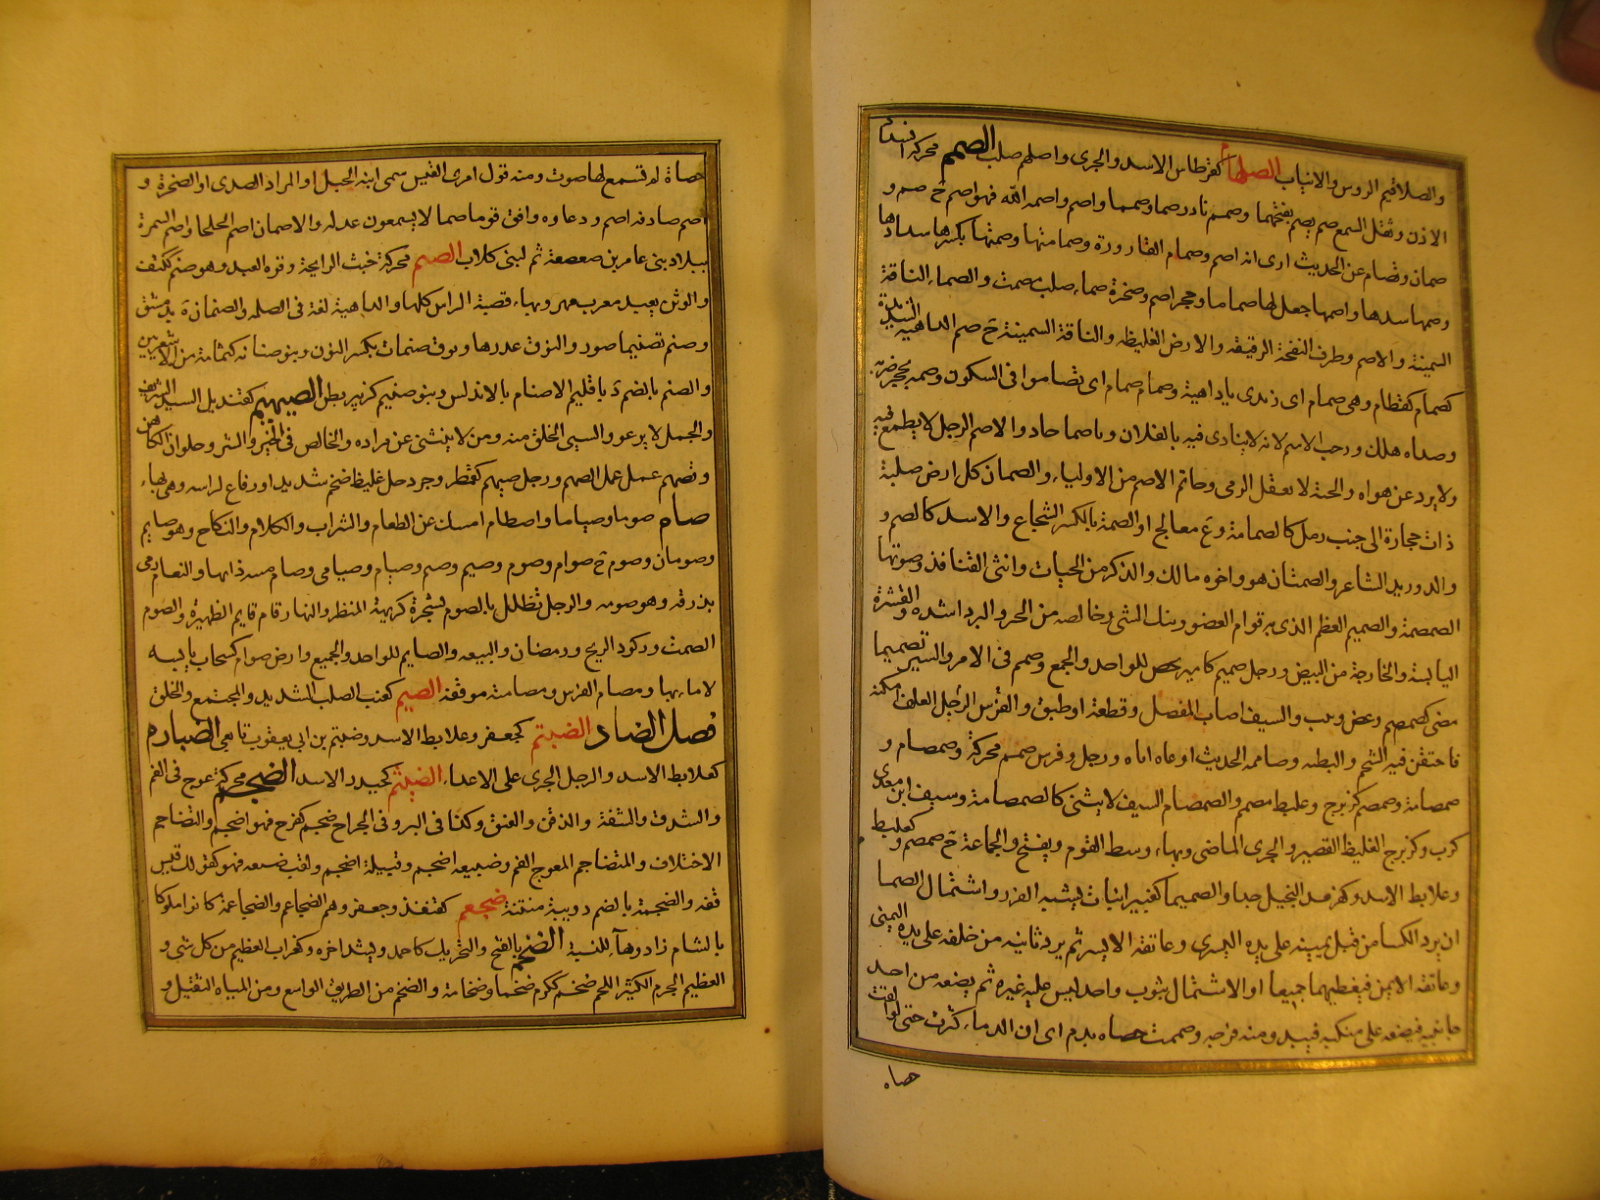 والصلاقيم الروس والانياب الصلهام كقرطاس الاسد والجرى واصلهم صلب الصمم محركة انسداد
الاذن وثقل السمع صم يصم بفتحهما وصمم نادر صما وصمما واصم واصمه الله فهو اصم ج صم و
صمان وتصام عن الحديث ارى انه اصم وصمام القارورة وصمامتها وصمتها بكسرها سدادها
وصمها سدها واصمها جعل لها صماما وحجر اصم وصخرة صماء صلب مصمت والصماء الناقة
السمينة والاصم وطرف العفجة الرقيقة والارض الغليظه والناقة السمينة ج صم الداهية الشديدة
كصمام كقطام وهى صمام اى زيدى يا داهية وصمام صمام اى تصاموا فى السكون وصمه بحجر ضربه
وصداه هلك ورجب الاصم لانه لا ينادى فيه يا لفلان وياصباحاه والاصم الرجل لا يطمع فيه
ولا يرد عن هواه والحية لا تقبل الرقى وحاتم الاصم من الاولياء والصمان كل ارض صلبة
ذات حجارة الى جنب رمل كالصمامة وع بعالج او الصمة بالكسر الشجاع والاسد كالصم و
والد دريد الشاعر والصمتان هو واخوه مالك والذكر من الحيات وانثى القنافذ وصوتها
الصمصمة والصميم العظم الذى به قوام العضو وبنك الشئ وخالصه من الحر والبرد اشده والقشرة
اليابسة والخارجة من البيض ورجل صميم كامير محض للواحد والجمع وصمم فى الامر والسير تصميما
مضى كصمصم وعض ونيب والسيف اصاب المفصل وقطعه او طبق والفرس الرجل العلف امكنه
فاحتقن فيه الشحم والبطنه وصاحبه الحديث اوعاه اياه ورجل وفرس صمم محركة وصمصام و
صمصامة وصمصم كزبرج وعلبط مصمم والصمصام السيف لا ينثنى كالصمصامة وسيف ابن معدى
كرب وكزبرج الغليظ القصير والجرى الماضى وبهاء وسط القوم ويفتح والجماعة ج صمصم وكعلبط
وعلابط الاسد وكهدهد البخيل جدا والصميما كغبيرا نبات يشبه الغرز واشتمال الصما
ان يرد الكسا من قبل يمينه على يده اليسرى وعاتقه الايسر ثم يرد ثانيه من خلفه على يده اليمنى
وعاتقه الايمن فيغطيهما جميعا او الاشتمال بثوب واحد ليس عليه غيره ثم يضعه من احد
جانبيه فيضعه على منكبه فيبدو منه فرجه وصممت حصاه بدم اى ان الدماء كثرت حتى لو القيت
حصاه
حصاة لم تسمع لها صوت ومنه قول امرى القيس صمى ابنة الجبل او المراد الصدى او الصخرة و
اصم صادفه اصم ودعاوه وافق قوما صما لا يسمعون عذله والاصمان اصم الجلحا واصم السمرة
ببلاد بنى عامر بن صعصعة ثم لبنى كلاب الصنم محركة خبث الرايحة وقوة العبد وهو صنم ككتف
والوثن يعبد معرب شمن وبهاء قصبة الراس كلها والداهية لغة فى الصلمه والصنمان ة بدمشق
وصنم تصنيما صور والنوق غدرها ونوق صنمات بكسر النون وبنو صنامه كثمامة من الاشعريين
والصنم بالضم د باقليم الاصنام بالاندلس وبنو صنيم كزبير بطن الصيهيم كقنديل السيد الشريف
والجمل لا يرغو والسيئ الخلق منه ومن لا ينثنى عن مراده والخالص فى الخير والشر وحلوان الكاهن
وتصهم عمل عمل الصهم ورجل صيهم كقمطر وجردحل غليظ ضخم شديد او رفاع لراسه وهى بهاء
صام صوما وصياما واصطام امسك عن الطعام والشراب والكلام والنكاح وهو صايم
وصومان وصوم ج صوام وصوم وصيم وصيم وصيام وصيامى وصام منيته ذاقها والنعام رمى
بذرقه وهو صومه والرجل تظلل بالصوم لشجرة كريهة المنظر والنهار قام قايم الظهيرة والصوم
الصمت وركود الريح ورمضان والبيعه والصايم للواحد والجميع وارض صوام كسحاب يابسه
لا ماء بها ومصام الفرس ومصامته موقفه الصيم كعنب الصلب الشديد والمجتمع والخلق
فصل الضاد الضبتم كجعفر وعلابط الاسد وضبتم بن ابى يعقوب تابعى الضبارم
كعلابط الاسد والرجل الجرى على الاعداء الضيثم كحيدر الاسد الضجم محركة عوج فى الفم
والشدق والشفة والذقن والعنق وكذا فى البئر وفى الجراح ضجم كفرح فهو اضجم والتضاجم
الاختلاف والمتضاجم المعوج الفم وضبيعة اضجم وقبيلة اضجم ولقب ضبيعه فهو كقولك قيس
قفه والضجمة بالضم دويبة منتنة ضجعم كقنفذ وجعفر وهم الضجاعم والضجاعمة كانوا ملوكا
بالشام زادوها للنسبة الضخم بالفتح والتحريك كاحمد ويشدد اخره وكغراب العظيم من كل شئ و
العظيم الجرم الكثير اللحم ضخم ككرم ضخما وضخامة والضخم من الطريق الواسع ومن المياه الثقيل و